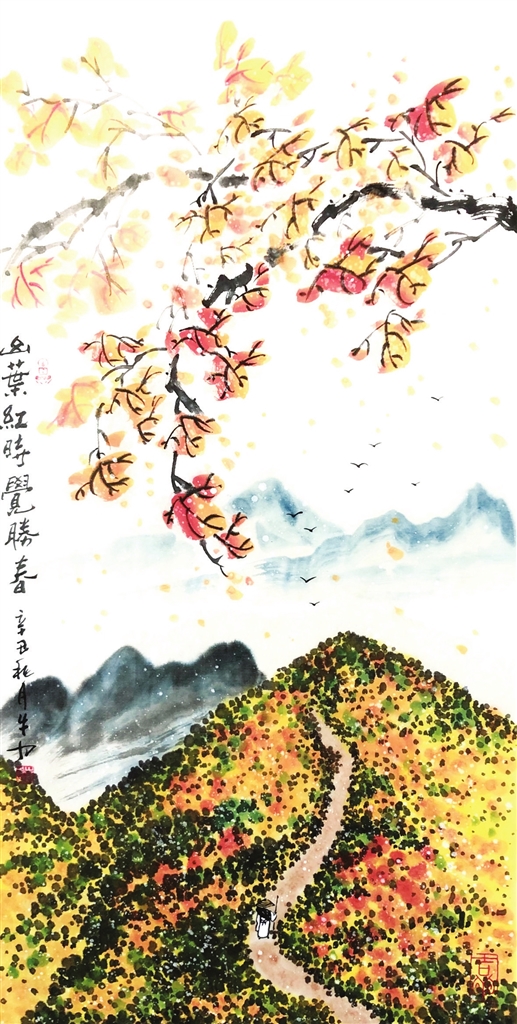 山葉紅時覺勝春 辛丑秋月